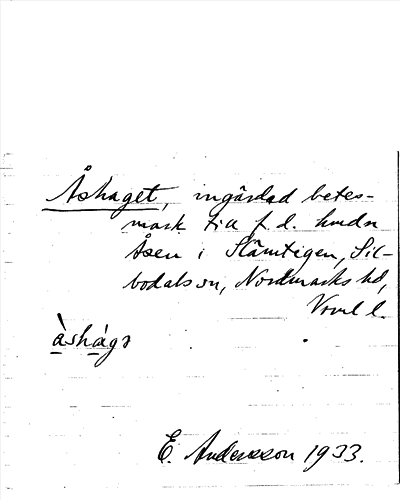 Åshaget, ingärdad betes-
mark till f.d. hmdn
Åsen i Slämtegen, Sil-
bodals sn, Nordmarks hd,
Vrml l.
åshagə
E. Andersson 1933.